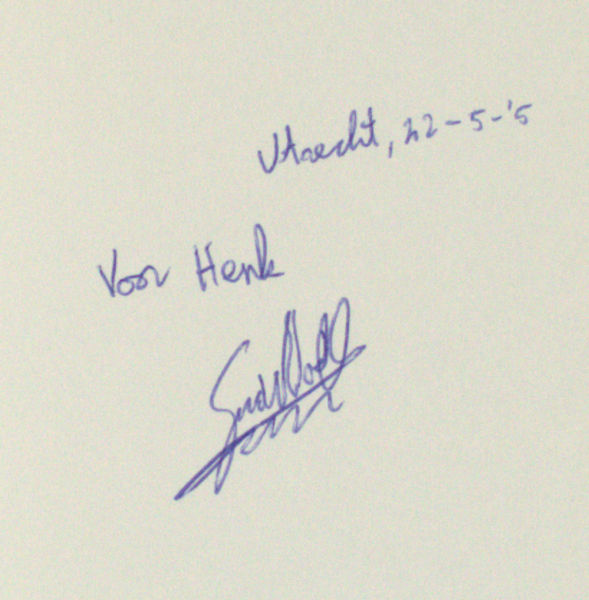 Utrecht, 22-5-'5
Voor Henk